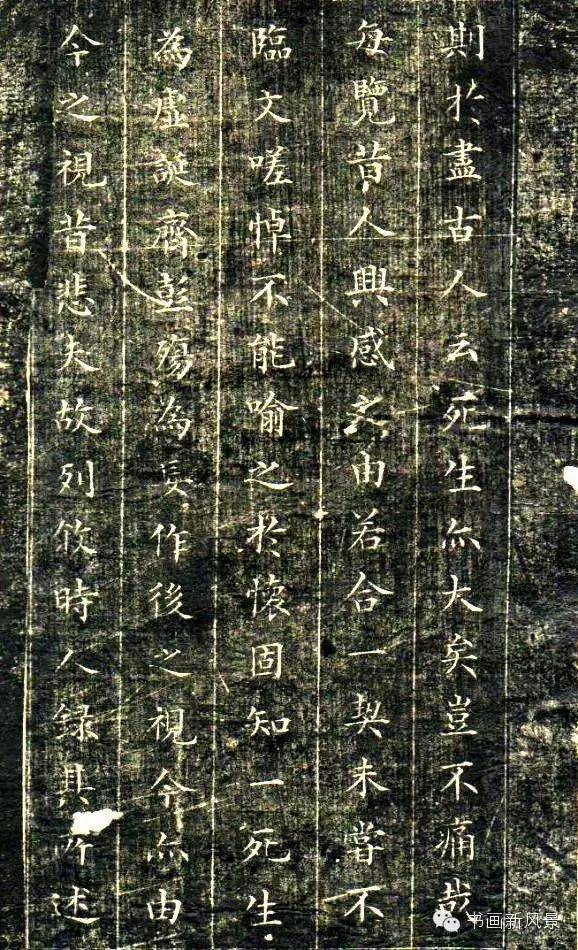 期於盡古人云死生亦大矣豈不痛哉
每覽昔人興感之由若合一契未嘗不
臨文嗟悼不能喻之於懷固知一死生
為虛誕齊彭殤為妄作後之視今亦由
今之視昔悲夫故列敘時人錄其所述
书画新风景